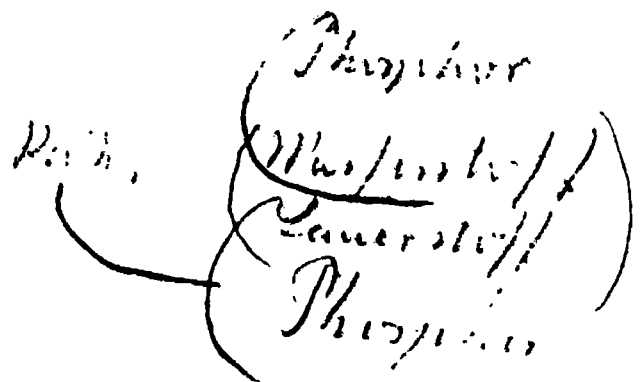 Phosphor
Wasserstoff
Sauerstoff
Phosphor